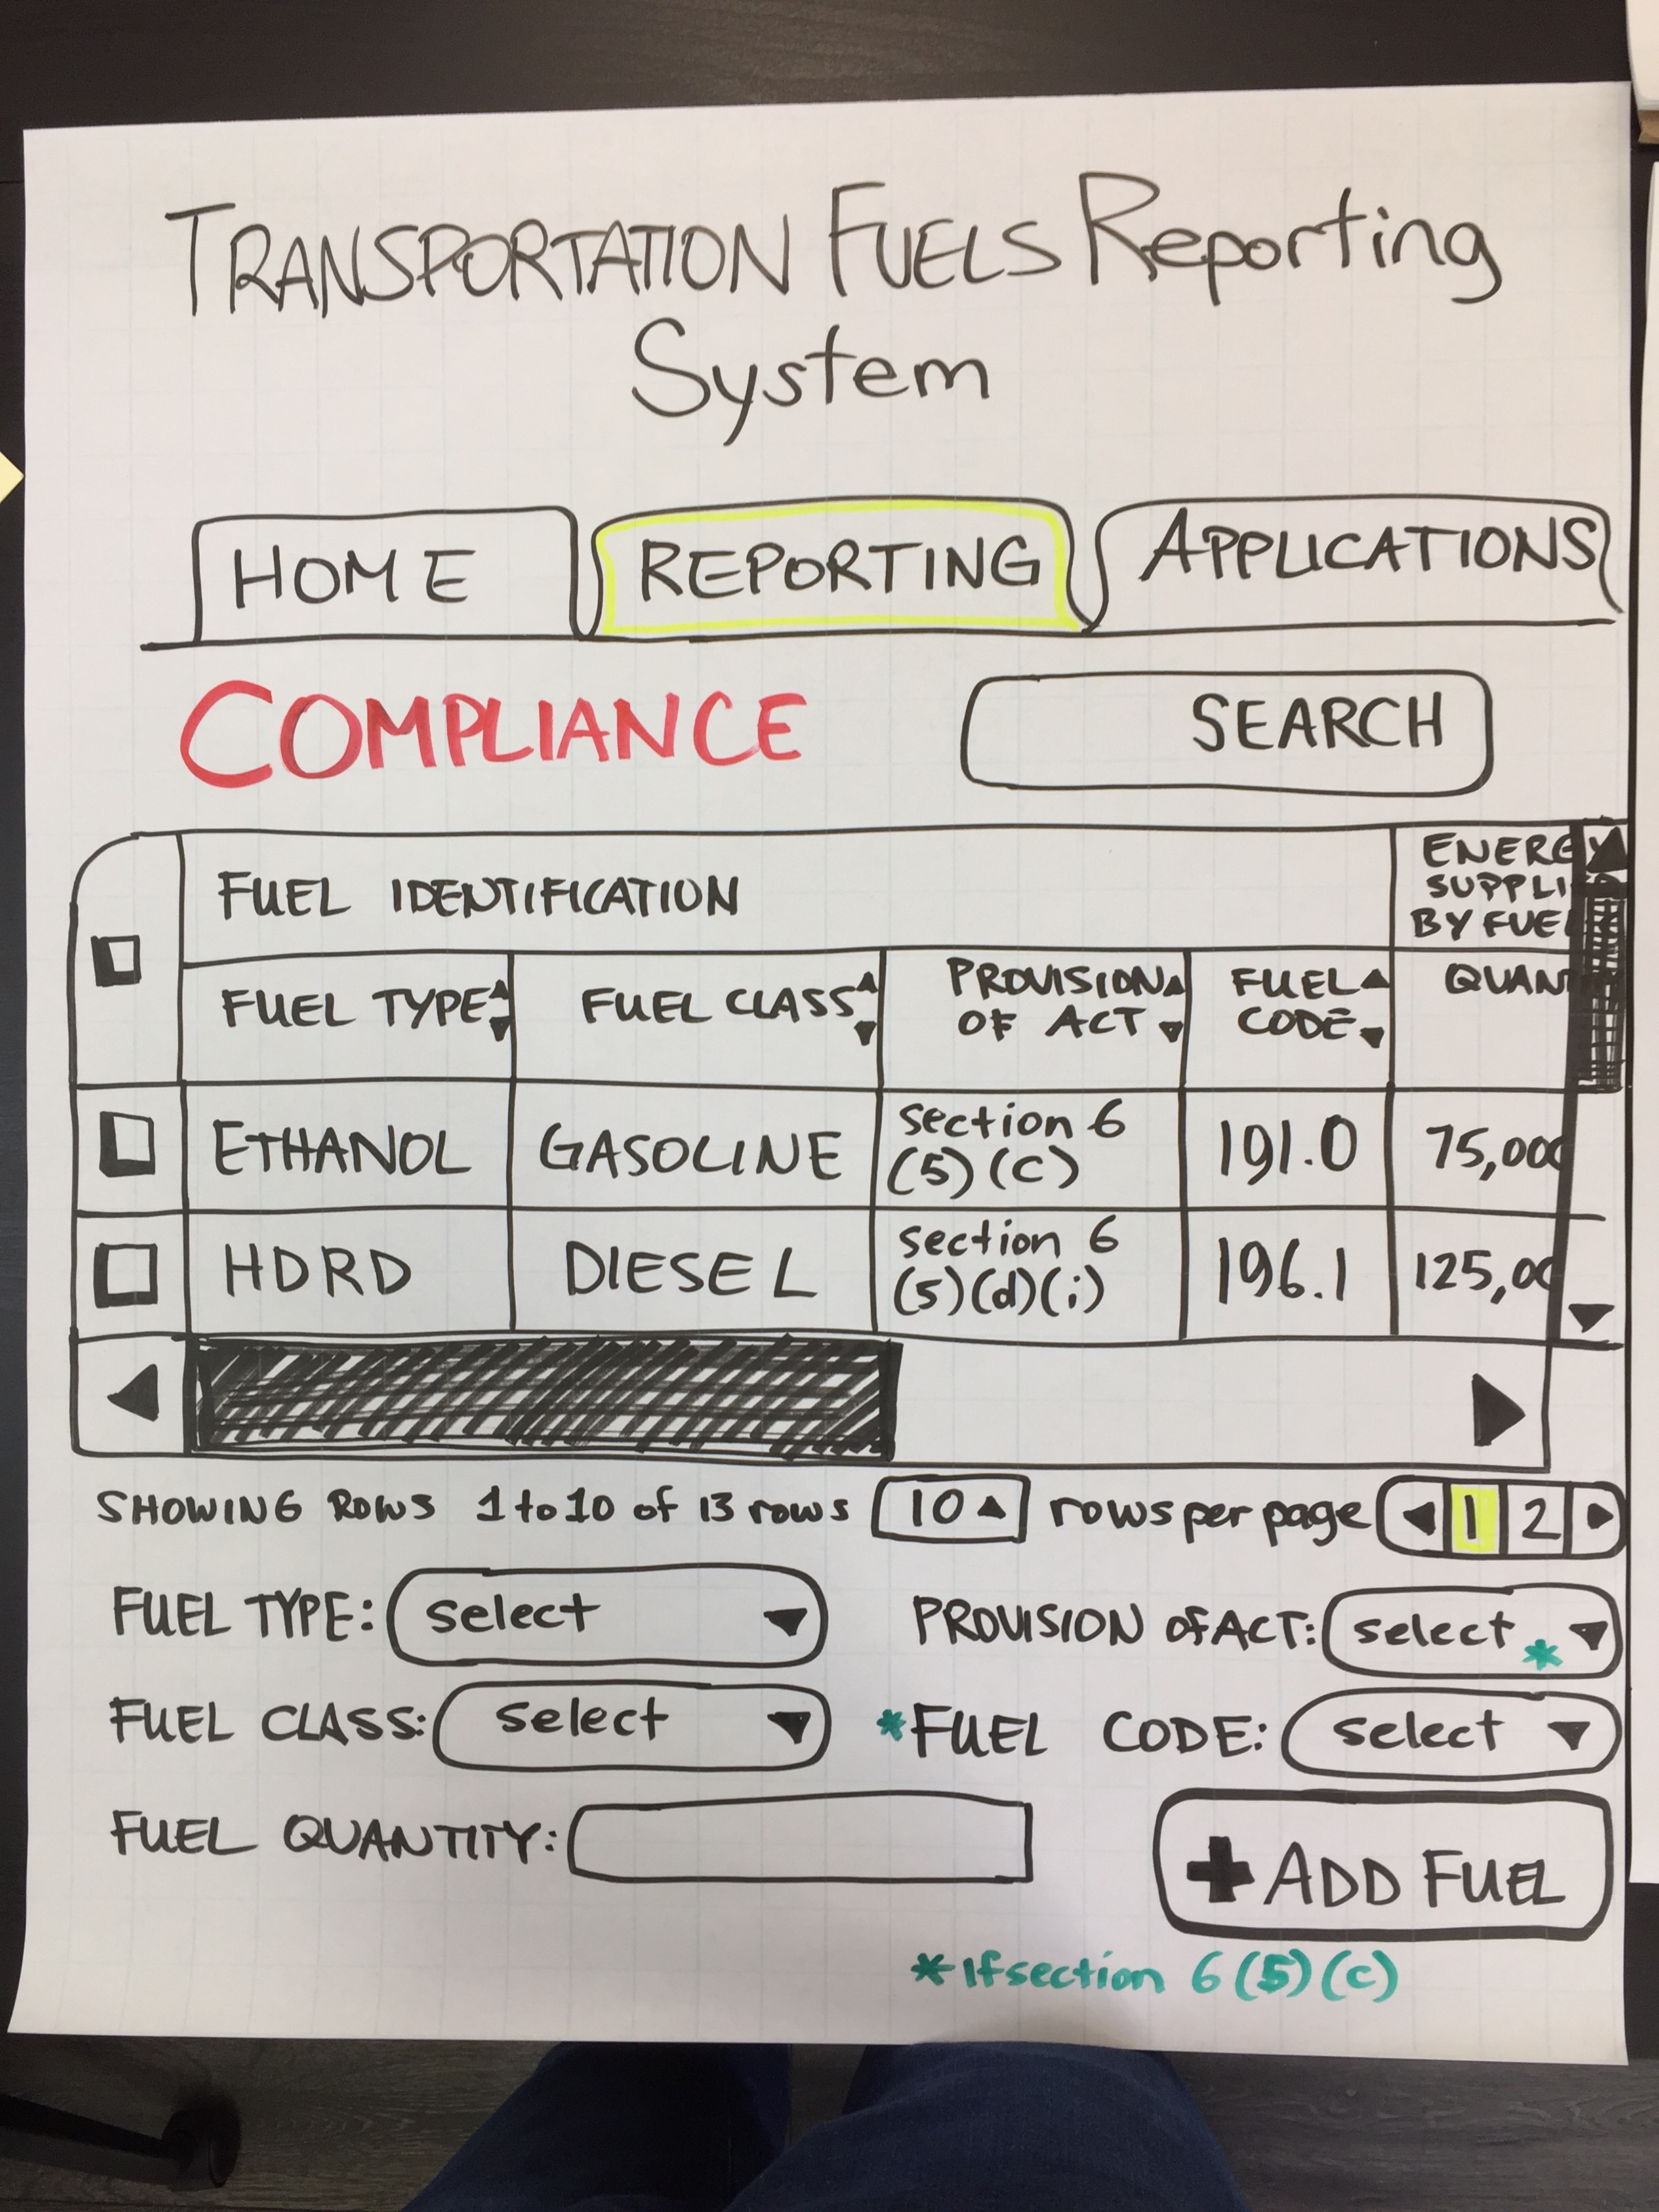 TRANSPORTATION FUELS Reporting
System
HOME REPORTING APPLICATIONS
COMPLIANCE SEARCH
FUEL IDENTIFICATION
ENERGY
SUPPLI
BY FUEL
FUEL TYPE FUEL CLASS PROVISION OF ACT FUEL CODE QUAN
ETHANOL GASOLINE section 6 (5)(c) 191.0 75,000
HDRD DIESEL section 6 (5)(d)(i) 196.1 125,00
SHOWING ROWS 1 to 10 of 13 rows 10 rows per page 1 2
FUEL TYPE: select PROVISION of ACT: select *
FUEL CLASS: select *FUEL CODE: select
FUEL QUANTITY:
+ ADD FUEL
* If section 6 (5) (c)